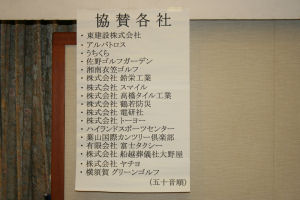 協賛各社
・東建設株式会社
・アルバトロス
・うちくら
・佐野ゴルフガーデン
・湘南衣笠ゴルフ
・株式会社 鈴栄工業
・株式会社 スマイル
・株式会社 高橋タイル工業
・株式会社 鶴若防災
・株式会社 電研社
・株式会社 トーヨー
・ハイランドスポーツセンター
・葉山国際カンツリー倶楽部
・有限会社 富士タクシー
・株式会社 船越葬儀社大野屋
・株式会社 ヤチヨ
・横須賀 グリーンゴルフ
(五十音順)